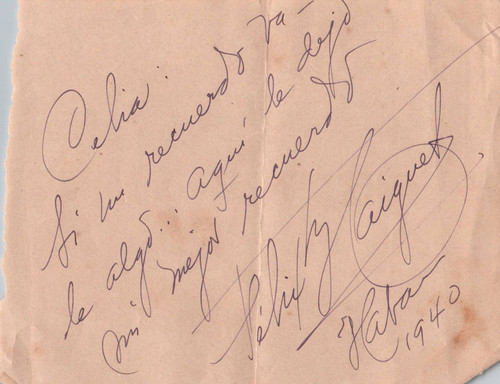 Celia:
Si un recuerdo va-
le algo... aquí le dejo
mi mejor recuerdo
Félix B Caignet
Habana
1940